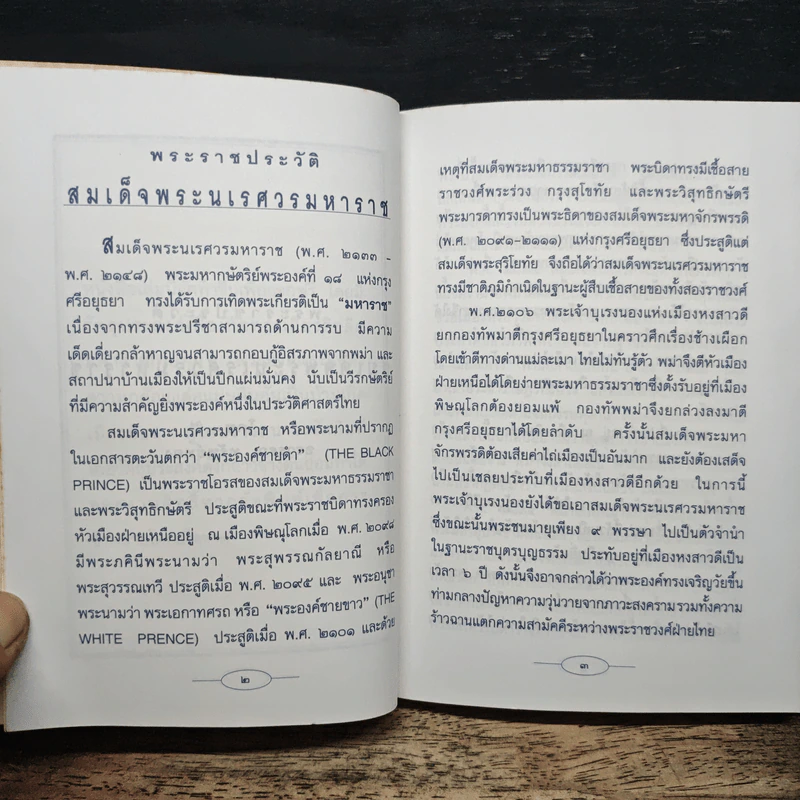 พระราชประวัติ
สมเด็จพระนเรศวรมหาราช
สมเด็จพระนเรศวรมหาราช (พ.ศ. ๒๑๓๓ -
พ.ศ. ๒๑๔๘) พระมหากษัตริย์พระองค์ที่ ๑๘ แห่งกรุง
ศรีอยุธยา ทรงได้รับการเทิดพระเกียรติเป็น "มหาราช"
เนื่องจากทรงพระปรีชาสามารถด้านการรบ มีความ
เด็ดเดี่ยวกล้าหาญจนสามารถกอบกู้อิสรภาพจากพม่า และ
สถาปนาบ้านเมืองให้เป็นปึกแผ่นมั่นคง นับเป็นวีรกษัตริย์
ที่มีความสำคัญยิ่งพระองค์หนึ่งในประวัติศาสตร์ไทย
สมเด็จพระนเรศวรมหาราช หรือพระนามที่ปรากฏ
ในเอกสารตะวันตกว่า "พระองค์ชายดำ" (THE BLACK
PRINCE) เป็นพระราชโอรสของสมเด็จพระมหาธรรมราชา
และพระวิสุทธิกษัตรี ประสูติขณะที่พระราชบิดาทรงครอง
หัวเมืองฝ่ายเหนืออยู่ ณ เมืองพิษณุโลกเมื่อ พ.ศ. ๒๐๙๘
มีพระภคินีพระนามว่า พระสุพรรณกัลยาณี หรือ
พระสุวรรณเทวี ประสูติเมื่อ พ.ศ. ๒๐๙๕ และ พระอนุชา
พระนามว่า พระเอกาทศรถ หรือ "พระองค์ชายขาว" (THE
WHITE PRENCE) ประสูติเมื่อ พ.ศ. ๒๑๐๑ และด้วย
๒
เหตุที่สมเด็จพระมหาธรรมราชา พระบิดาทรงมีเชื้อสาย
ราชวงศ์พระร่วง กรุงสุโขทัย และพระวิสุทธิกษัตรี
พระมารดาทรงเป็นพระธิดาของสมเด็จพระมหาจักรพรรดิ
(พ.ศ. ๒๐๙๑-๒๑๑๑) แห่งกรุงศรีอยุธยา ซึ่งประสูติแต่
สมเด็จพระสุริโยทัย จึงถือได้ว่าสมเด็จพระนเรศวรมหาราช
ทรงมีชาติภูมิกำเนิดในฐานะผู้สืบเชื้อสายของทั้งสองราชวงศ์
พ.ศ.๒๑๐๖ พระเจ้าบุเรงนองแห่งเมืองหงสาวดี
ยกกองทัพมาตีกรุงศรีอยุธยาในคราวศึกเรื่องช้างเผือก
โดยเข้าตีทางด่านแม่ละเมา ไทยไม่ทันรู้ตัว พม่าจึงตีหัวเมือง
ฝ่ายเหนือได้โดยง่ายพระมหาธรรมราชาซึ่งตั้งรับอยู่ที่เมือง
พิษณุโลกต้องยอมแพ้ กองทัพพม่าจึงยกล่วงลงมาตี
กรุงศรีอยุธยาได้โดยลำดับ ครั้งนั้นสมเด็จพระมหา
จักรพรรดิต้องเสียค่าไถ่เมืองเป็นอันมาก และยังต้องเสด็จ
ไปเป็นเชลยประทับที่เมืองหงสาวดีอีกด้วย ในการนี้
พระเจ้าบุเรงนองยังได้ขอเอาสมเด็จพระนเรศวรมหาราช
ซึ่งขณะนั้นพระชนมายุเพียง ๙ พรรษา ไปเป็นตัวจำนำ
ในฐานะราชบุตรบุญธรรม ประทับอยู่ที่เมืองหงสาวดีเป็น
เวลา ๖ ปี ดังนั้นจึงอาจกล่าวได้ว่าพระองค์ทรงเจริญวัยขึ้น
ท่ามกลางปัญหาความวุ่นวายจากภาวะสงคราม รวมทั้งความ
ร้าวฉานแตกความสามัคคีระหว่างพระราชวงศ์ฝ่ายไทย
๓